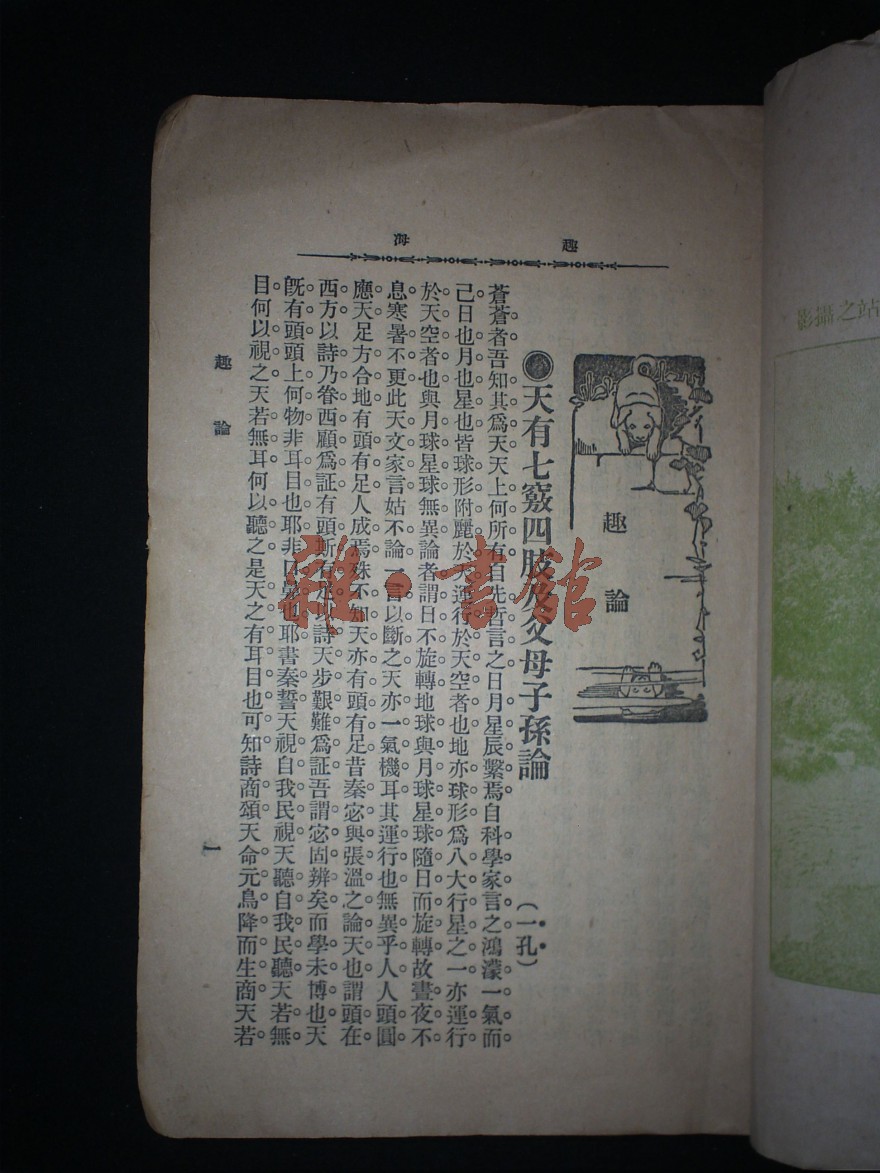 趣海
趣論
●天有七竅四肢及父母子孫論
(一孔)
蒼蒼者吾知其爲天天上何所有自先哲言之日月星辰繫焉自科學家言之鴻濛一氣而
已日也月也星也皆球形附麗於天運行於天空者也地亦球形爲八大行星之一亦運行
於天空者也與月球星球無異論者謂日不旋轉地球與月球星球隨日而旋轉故晝夜不
息寒暑不更此天文家言姑不論一言以斷之天亦一氣機耳其運行也無異乎人人頭圓
應天足方合地有頭有足人成焉殊不知天亦有頭有足昔秦宓與張溫之論天也謂頭在
西方以詩乃眷西顧爲証有頭斯有足以詩天步艱難爲証吾謂宓固辨矣而學未博也天
旣有頭頭上何物非耳目也耶非口鼻也耶書秦誓天視自我民視天聽自我民聽天若無
目何以視之天若無耳何以聽之是天之有耳目也可知詩商頌天命元鳥降而生商天若
趣論
一
雜·書館
站之攝影